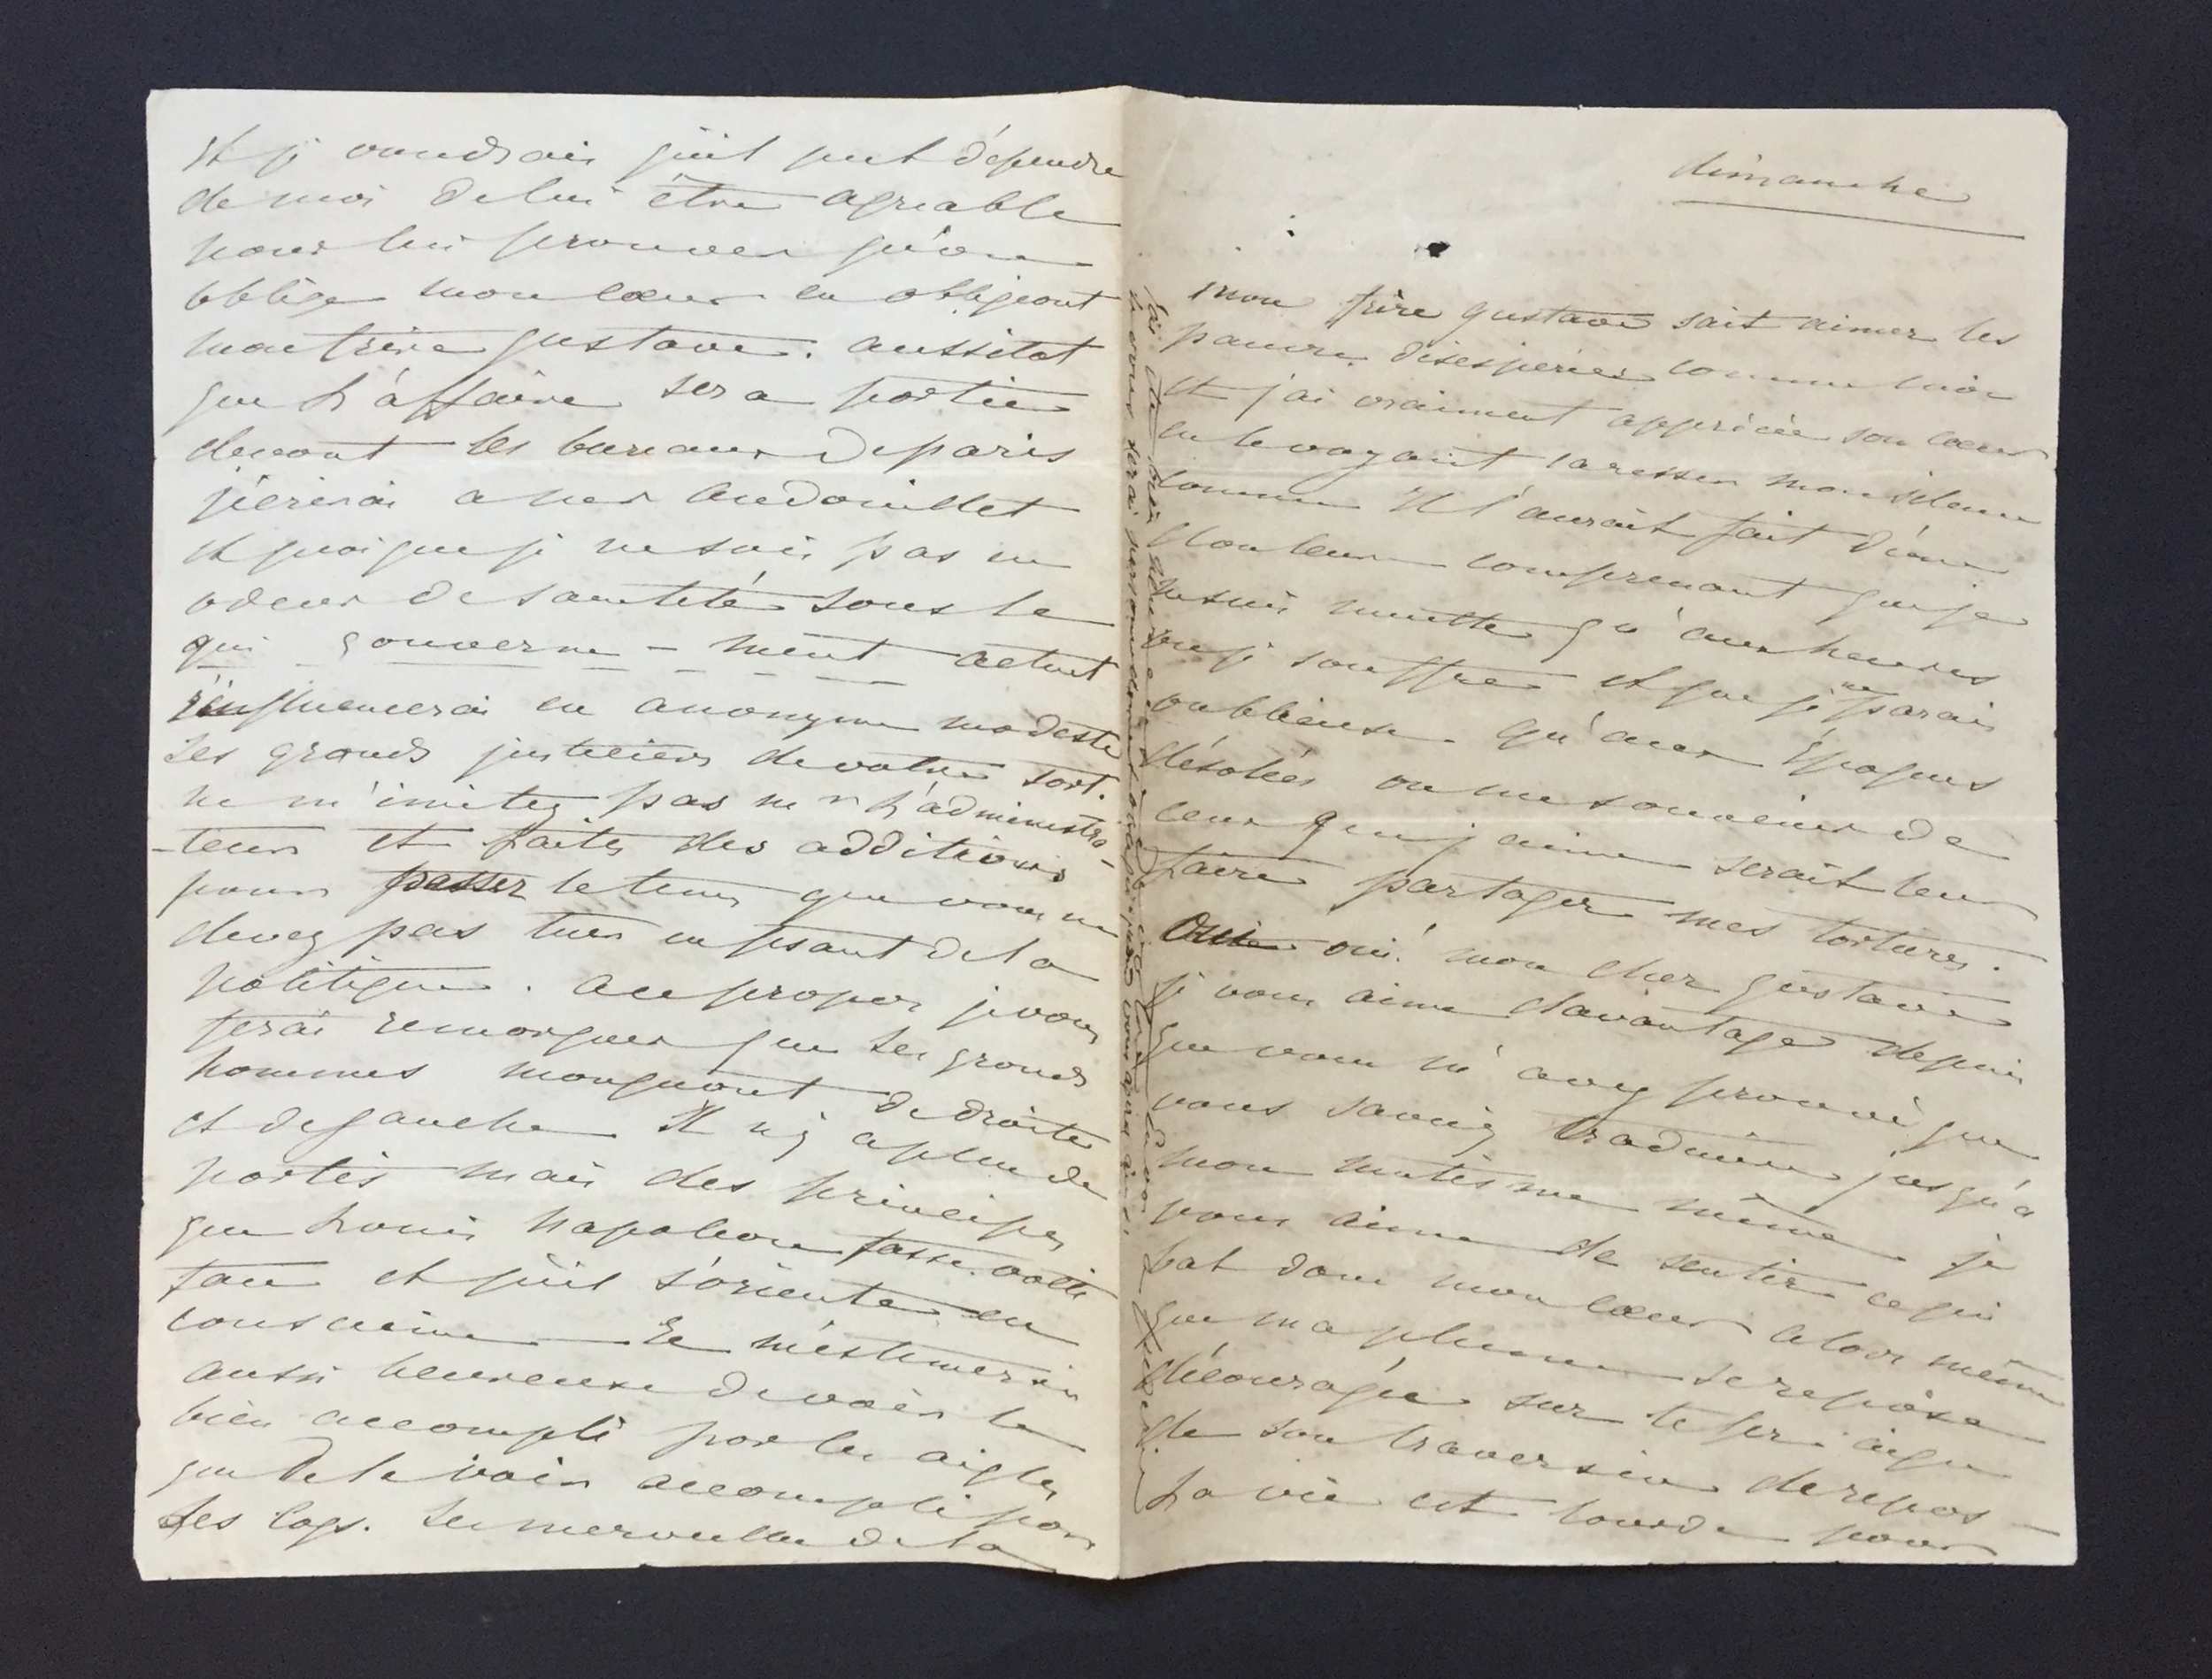 dimanche
mon frère gustave sait aimer les
pauvres désespérées comme moi
et j'ai vraiment appréciée son cœur
en le voyant caresser mon silence
comme Il l'aurait fait d'une
douleur comprenant que je
ne suis muette qu'aux heures
ou je souffre et que je ne parais
oublieuse qu'aux Époques
désolées ou me souvenir de
ceux que j'aime serait leur
faire partager mes tortures.
oui! mon cher gustave
je vous aime davantage depuis
que vous m'avez prouvé que
vous saviez traduire jusqu'a
mon mutisme même je
vous aime de sentir ce qui
bat dans mon cœur alors même
que ma plume se repose
découragée sur le aigu
de son traversin de repos —
La vie est lourde pour
et je voudrais qu'il put dépendre
de moi de lui être agréable
pour lui prouver qu'on
oblige mon cœur en obligeant
mon frère gustave. aussitot
que L'affaire sera portée
devant les bureaux de paris
j'écrirai a
et quoique je ne sois pas en
odeur de sainteté sous le
qui gouverne - ment actuel
j'influencerai en anonyme modeste
Les grands justiciers de votre sort.
ne m'imitez pas mr L'administra-
-teur et faites des additions
pour passer le tems que vous ne
devez pas tuer en fesant de la
politique. a ce propos je vous
ferai remarquer que les grands
hommes manquant de droite
et de gauche Il n'y a plus de
partis mais des principes
que Louis napoléon fasse volte
face et qu'il s'oriente en
conscience — Je m'estimerai
aussi heureuse de voir le
bien accompli par les aigles
que de le voir accompli par
Les coqs. Les merveilles de la